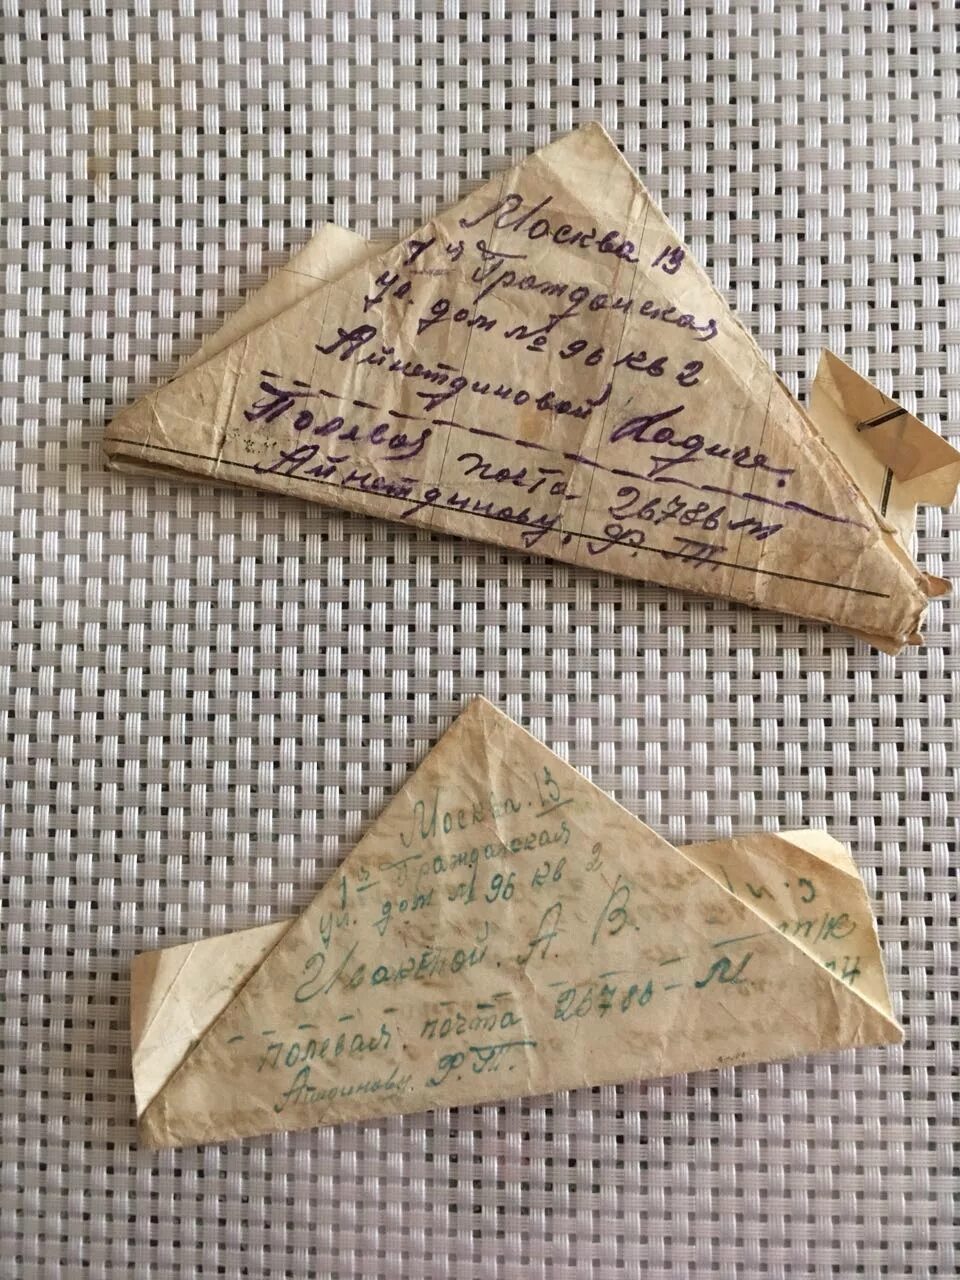 Москва 13
1я Гражданская
ул. дом № 96 кв 2
Айнетдиновой Хадиче.
Полевая почта 26786 т
Айнетдинову, Ф. Т
Москва. 13
1я Гражданская
ул. дом № 96 кв 2
А. В.
Полевая почта 26786-М
Ф. Т.